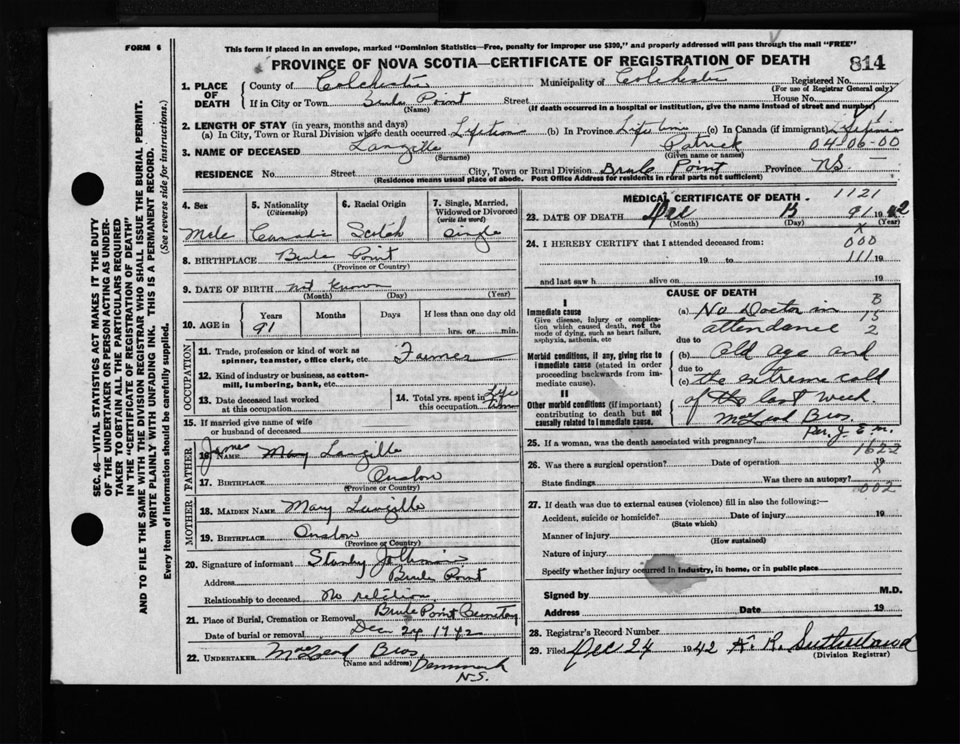 FORM 6
This form if placed in an envelope, marked "Dominion Statistics—Free, penalty for improper use $300," and properly addressed will pass through the mail "FREE"
PROVINCE OF NOVA SCOTIA—CERTIFICATE OF REGISTRATION OF DEATH 814
SEC. 46—VITAL STATISTICS ACT MAKES IT THE DUTY
OF THE UNDERTAKER OR PERSON ACTING AS UNDER-
TAKER TO OBTAIN ALL THE PARTICULARS REQUIRED
IN THE "CERTIFICATE OF REGISTRATION OF DEATH"
AND TO FILE THE SAME WITH THE DIVISION REGISTRAR WHO SHALL ISSUE THE BURIAL PERMIT.
WRITE PLAINLY WITH UNFADING INK. THIS IS A PERMANENT RECORD.
Every item of Information should be carefully supplied. (See reverse side for instructions.)
1. PLACE OF DEATH County of Colchester Municipality of Colchester Registered No.
(For use of Registrar General only)
If in City or Town Brule Point Street House No.
(Name) (If death occurred in a hospital or institution, give the name instead of street and number)
2. LENGTH OF STAY (in years, months and days)
(a) In City, Town or Rural Division where death occurred Lifetime (b) In Province Lifetime (c) In Canada (if immigrant) Lifetime
3. NAME OF DECEASED Langille Patrick 04-06-00
(Surname) (Given name or names)
RESIDENCE No. Street City, Town or Rural Division Brule Point Province NS
(Residence means usual place of abode. Post Office Address for residents in rural parts not sufficient)
4. Sex
Male
5. Nationality
(Citizenship)
6. Racial Origin
Scotch
7. Single, Married,
Widowed or Divorced
(write the word)
Single
8. BIRTHPLACE Brule Point
(Province or Country)
9. DATE OF BIRTH not known
(Month) (Day) (Year)
10. AGE in Years Months Days If less than one day old
91 hrs. or min.
OCCUPATION
11. Trade, profession or kind of work as
spinner, teamster, office clerk, etc. Farmer
12. Kind of industry or business, as cotton-
mill, lumbering, bank, etc.
13. Date deceased last worked
at this occupation
14. Total yrs. spent in
this occupation Life time
15. If married give name of wife
or husband of deceased
FATHER
16. NAME Langille
17. BIRTHPLACE Onslow
(Province or Country)
MOTHER
18. MAIDEN NAME Mary
19. BIRTHPLACE Onslow
(Province or Country)
20. Signature of informant Stanley
Address Brule Point
Relationship to deceased No relation
21. Place of Burial, Cremation or Removal Brule Point Cemetery
Date of burial or removal Dec 24 1942
22. UNDERTAKER MacLeod Bros
(Name and address) Denmark
N.S.
MEDICAL CERTIFICATE OF DEATH 1121
23. DATE OF DEATH Dec 91 1942
(Month) (Day) (Year)
24. I HEREBY CERTIFY that I attended deceased from: X
000
19 to 111 19
and last saw h alive on 19
CAUSE OF DEATH
I
Immediate cause
Give disease, injury or complica-
tion which caused death, not the
mode of dying, such as heart failure,
asphyxia, asthenia, etc
(a) No Doctor in
attendance
B
15
2
due to
Morbid conditions, if any, giving rise to
immediate cause (stated in order
proceeding backwards from im-
mediate cause).
(b) Old age and
due to
(c) the extreme cold
II
Other morbid conditions (if important)
contributing to death but not
causally related to Immediate cause.
of the last week.
McLeod Bros.
Per. J. E. M.
25. If a woman, was the death associated with pregnancy?
1622
26. Was there a surgical operation? Date of operation 19
X
State findings Was there an autopsy?
002
27. If death was due to external causes (violence) fill in also the following:—
Accident, suicide or homicide? Date of injury 19
(State which)
Manner of injury
(How sustained)
Nature of injury
Specify whether injury occurred in industry, in home, or in public place
Signed by M.D.
Address Date 19
28. Registrar's Record Number
29. Filed Dec 24 1942 A. R. Sutherland
(Division Registrar)